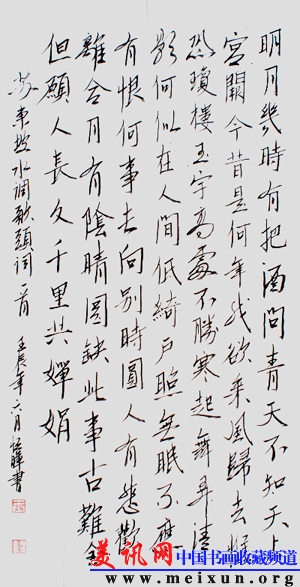 明月幾時有把酒問青天不知天上
宮闕今昔是何年我欲乘風歸去惟
恐瓊樓玉宇高處不勝寒起舞弄清
影何似在人間低綺戶照無眠不應
有恨何事長向別時圓人有悲歡
離合月有陰晴圓缺此事古難全
但願人長久千里共嬋娟
蘇東坡水調歌頭詞一首 壬辰年六月 書
美讯网 中国书画收藏频道
www.meixun.org